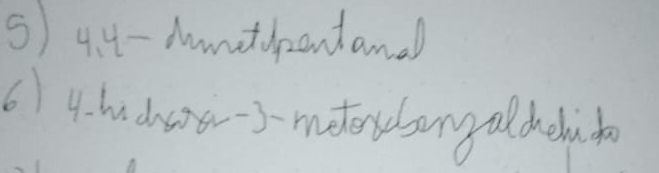 5) 4,4-dimetilpentanal
6) 4-hidroxi-3-metoxibenzaldehido